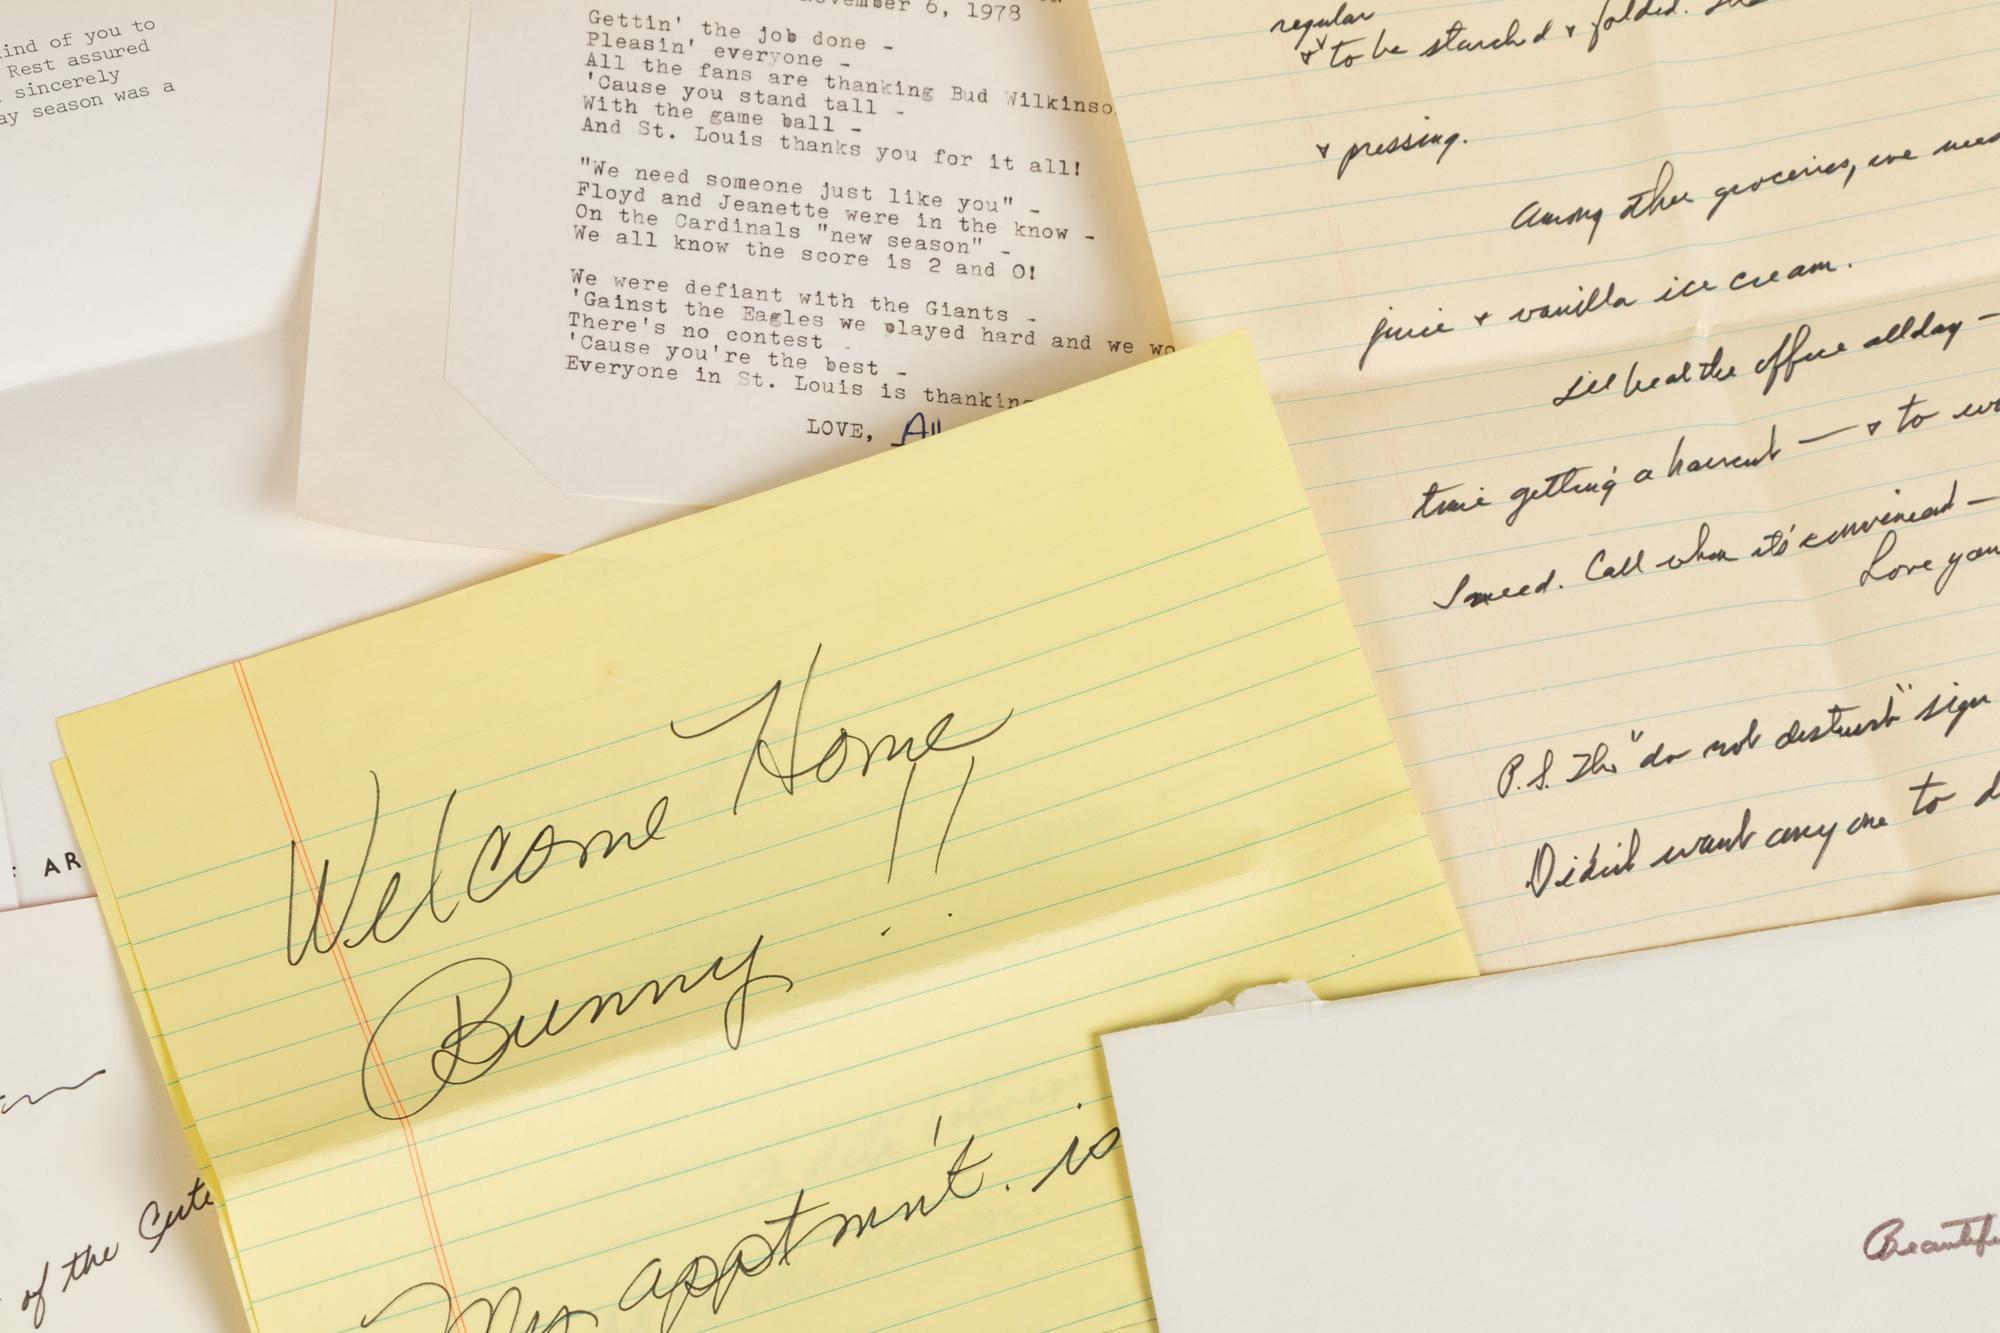 ind of you to
Rest assured
sincerely
ay season was a
November 6, 1978
Gettin' the job done -
Pleasin' everyone -
All the fans are thanking Bud Wilkinso
'Cause you stand tall -
With the game ball -
And St. Louis thanks you for it all!
"We need someone just like you" -
Floyd and Jeanette were in the know -
On the Cardinals "new season" -
We all know the score is 2 and 0!
We were defiant with the Giants -
'Gainst the Eagles we played hard and we wo
There's no contest -
'Cause you're the best -
Everyone in St. Louis is thanking
LOVE, All
regular
+ to be starched + folded.
+ pressing.
Among other groceries, we need
juice + vanilla ice cream.
I'll be at the office all day —
time getting a haircut — + to
I need. Call when it's convenient —
Love you
P.S. The "do not disturb" sign
Didn't want any one to d
Welcome Home
Bunny !!
My apptmn't. is
: AR
of the Cute
Beautif